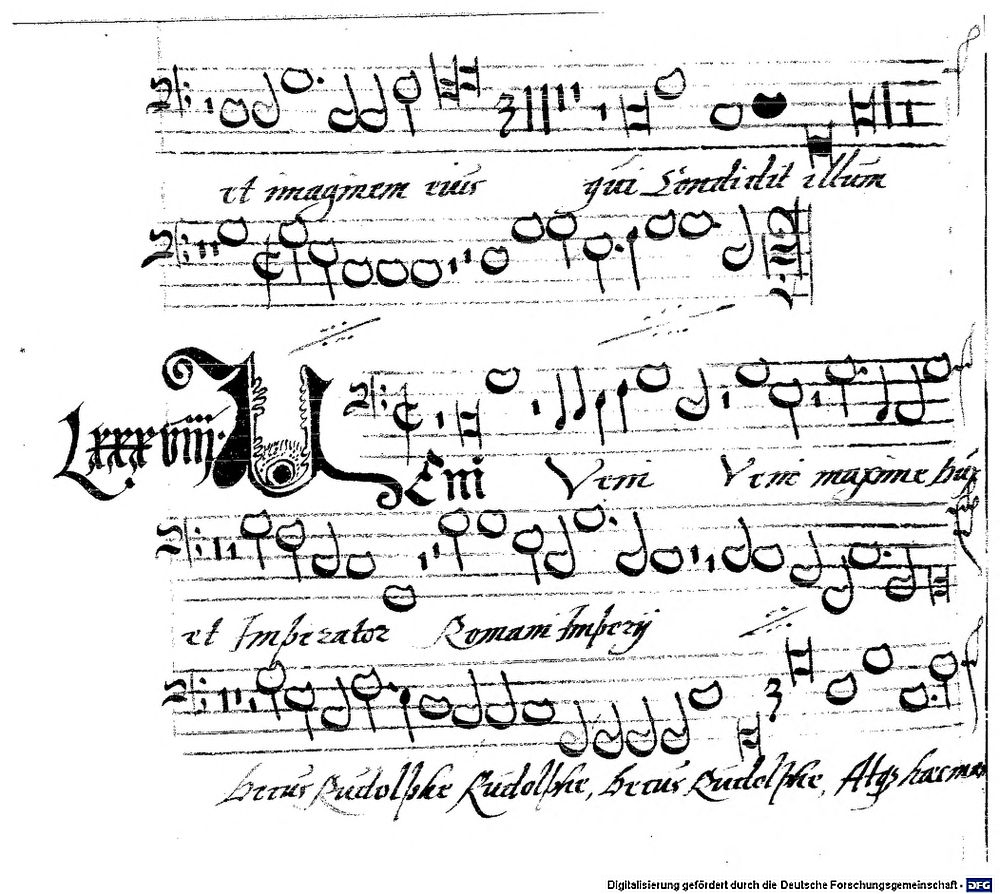 et imaginem eius qui Condidit illum
Lxxxviiij. VEni Veni Veni maxime
et Imperator Romani Imperij
Rudolphe Rudolphe, Rudolphe, Atqs
Digitalisierung gefördert durch die Deutsche Forschungsgemeinschaft - DFG